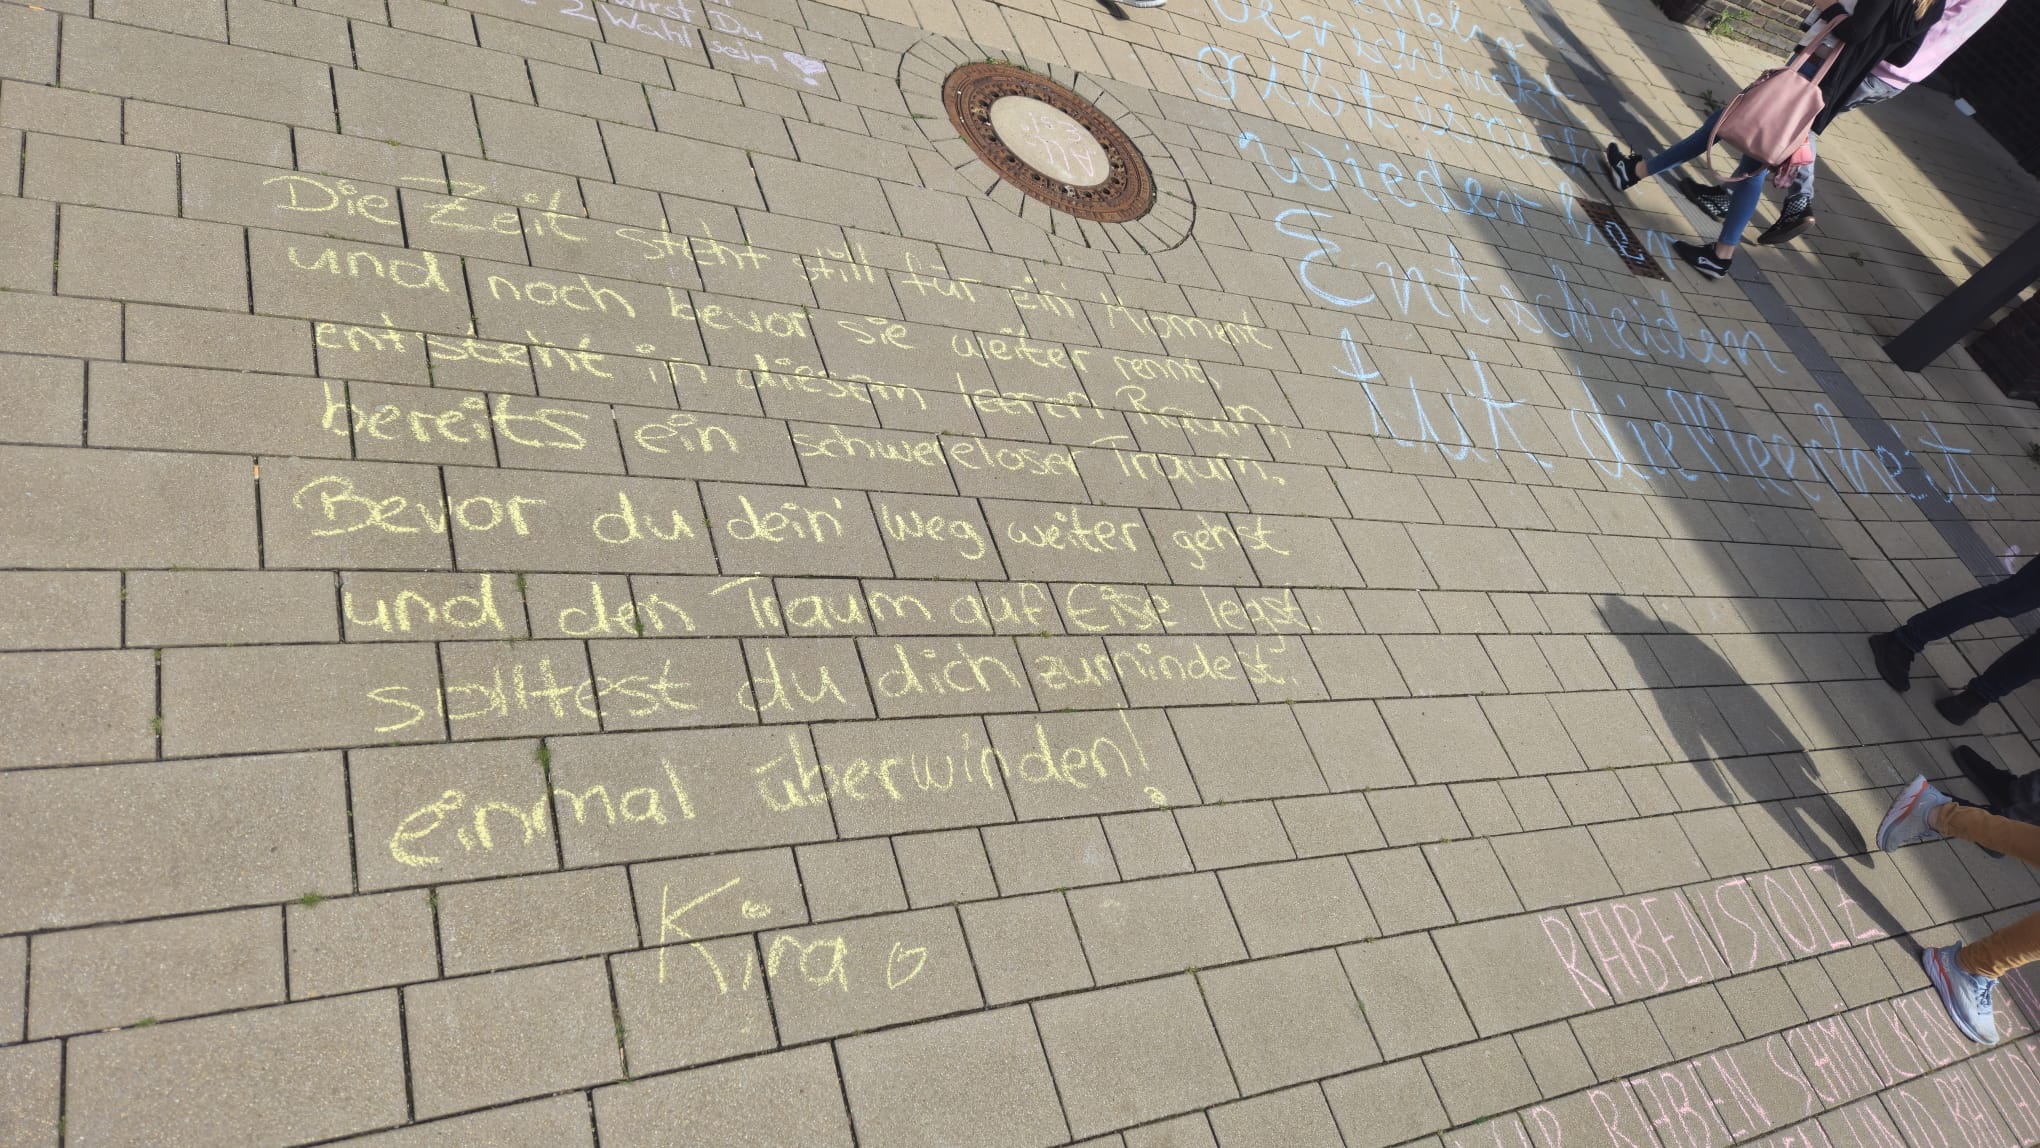 wirst Du
2 Wahl sein
Die Zeit steht still für ein Moment
und noch bevor sie weiter rennt,
entsteht in diesem leeren Raum,
bereits ein schwereloser Traum.
Bevor du dein' Weg weiter gehst
und den Traum auf Eise legst,
solltest du dich zumindest,
einmal überwinden!
Kira
verschluckt
gibt es nich
wieder her
Entscheiden
tut die Meerheit
RABENSTOLZ
RABEN SCHMÜCKEN